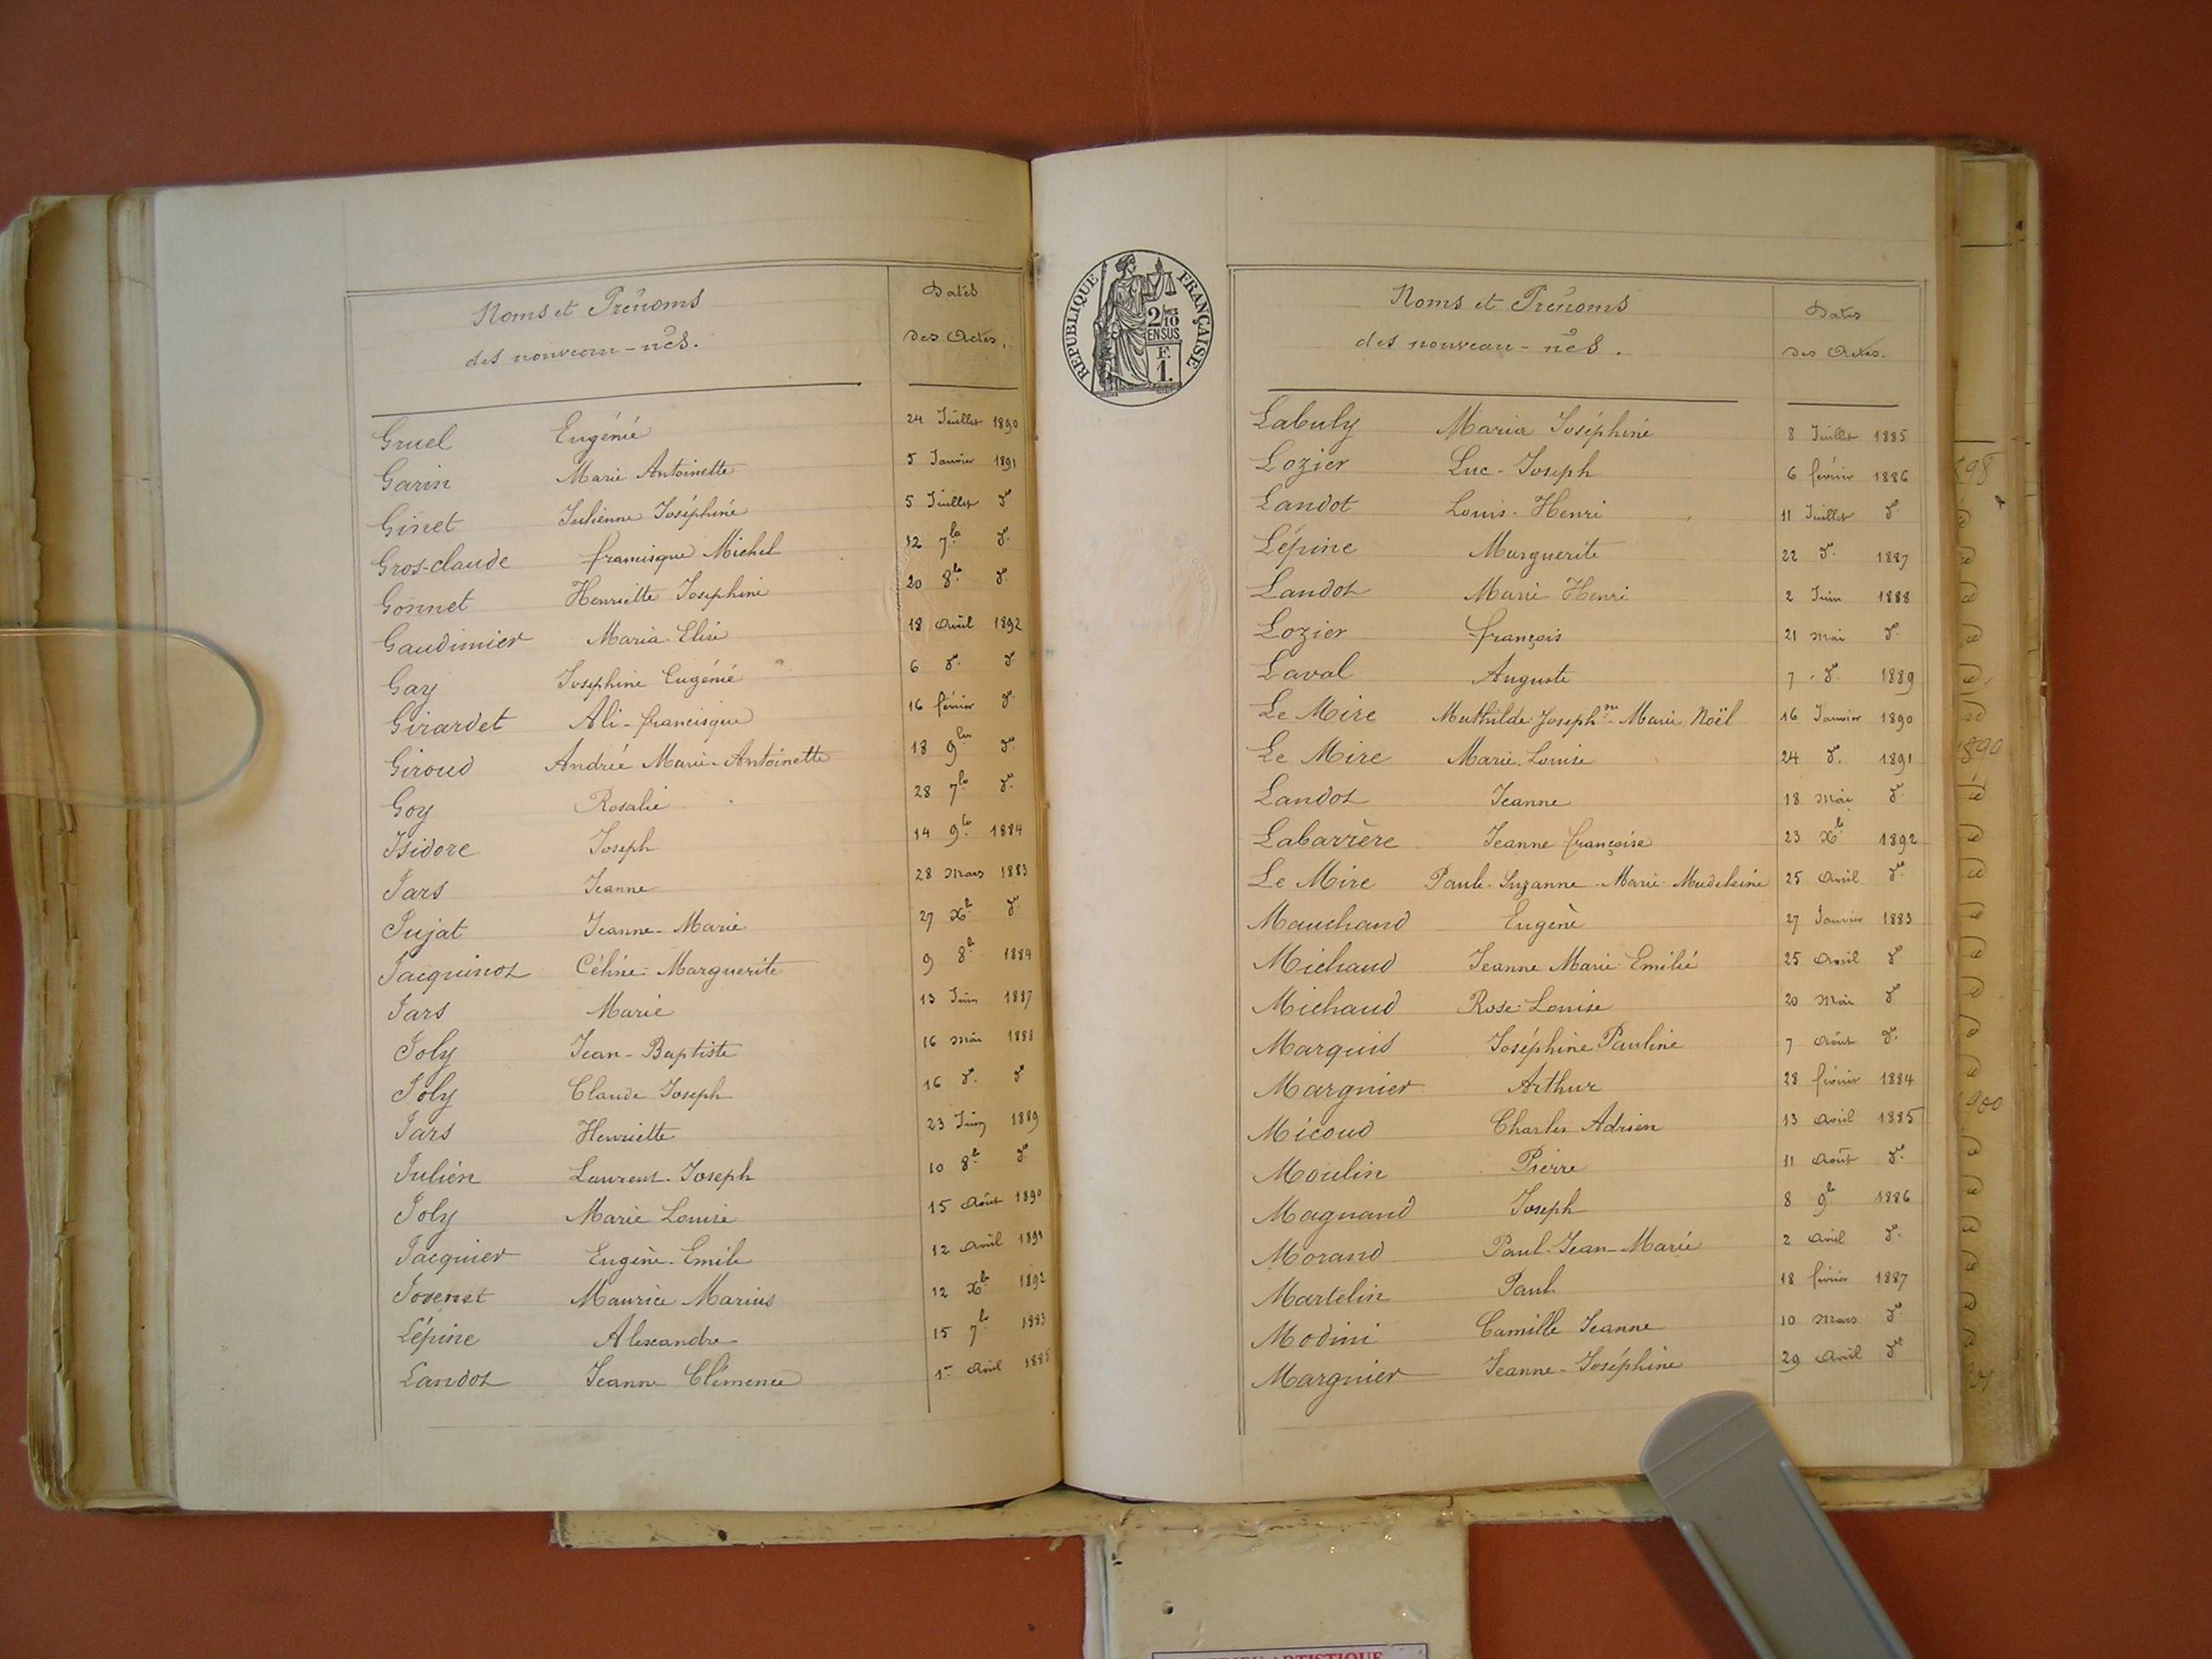 Noms et Prénoms
des nouveau-nés.
Dates
des Actes.
Gruel Eugénie 24 Juillet 1890
Garin Marie Antoinette 5 Janvier 1891
Ginet Julienne Joséphine 5 Juillet do
Gros-claude francisque Michel 12 7bre do
Gonnet Henriette Joséphine 20 8bre do
Gaudimier Maria Elise 18 avril 1892
Gay Joséphine Eugénie 6 do do
Girardet Ali-francisque 16 février do
Giroud Andrée Marie-Antoinette 18 9bre do
Goy Rosalie 28 7bre do
Isidore Joseph 14 9bre 1884
Jars Jeanne 28 Mars 1883
Jujat Jeanne-Marie 27 Xbre do
Jacquinot Céline-Marguerite 9 8bre 1884
Jars Marie 13 Juin 1887
Joly Jean-Baptiste 16 mai 1888
Joly Claude Joseph 16 do do
Jars Henriette 23 Juin 1889
Julien Laurent-Joseph 10 8bre do
Joly Marie Louise 15 Août 1890
Jacquier Eugène-Emile 12 avril 1891
Jovenet Maurice Marius 12 Xbre 1892
Lépine Alexandre 15 7bre 1883
Landot Jeanne Clémence 1er Avril 1885
REPUBLIQUE FRANÇAISE
2/10MES
EN SUS
F.
1.
Noms et Prénoms
des nouveau-nés.
Dates
des Actes.
Labuly Maria Joséphine 8 Juillet 1885
Lozier Luc-Joseph 6 février 1886
Landot Louis-Henri 11 Juillet do
Lépine Marguerite 22 do 1887
Landot Marie Henri 2 Juin 1888
Lozier françois 21 mai do
Laval Auguste 7 do 1889
Le Mire Mathilde Josephne Marie Noël 16 Janvier 1890
Le Mire Marie-Louise 24 do 1891
Landot Jeanne 18 mai do
Labarrère Jeanne françoise 23 Xbre 1892
Le Mire Paule-Suzanne-Marie-Madeleine 25 avril do
Mauchand Eugène 27 Janvier 1883
Michaud Jeanne Marie Emilie 25 avril do
Michaud Rose-Louise 20 mai do
Marquis Joséphine Pauline 7 Août do
Margnier Arthur 28 février 1884
Micoud Charles Adrien 13 avril 1885
Moulin Pierre 11 août do
Magnand Joseph 8 9bre 1886
Morand Paul-Jean-Marie 2 avril do
Martelin Paul 18 février 1887
Modini Camille Jeanne 10 mars do
Margnier Jeanne-Joséphine 29 avril do
1890
1900